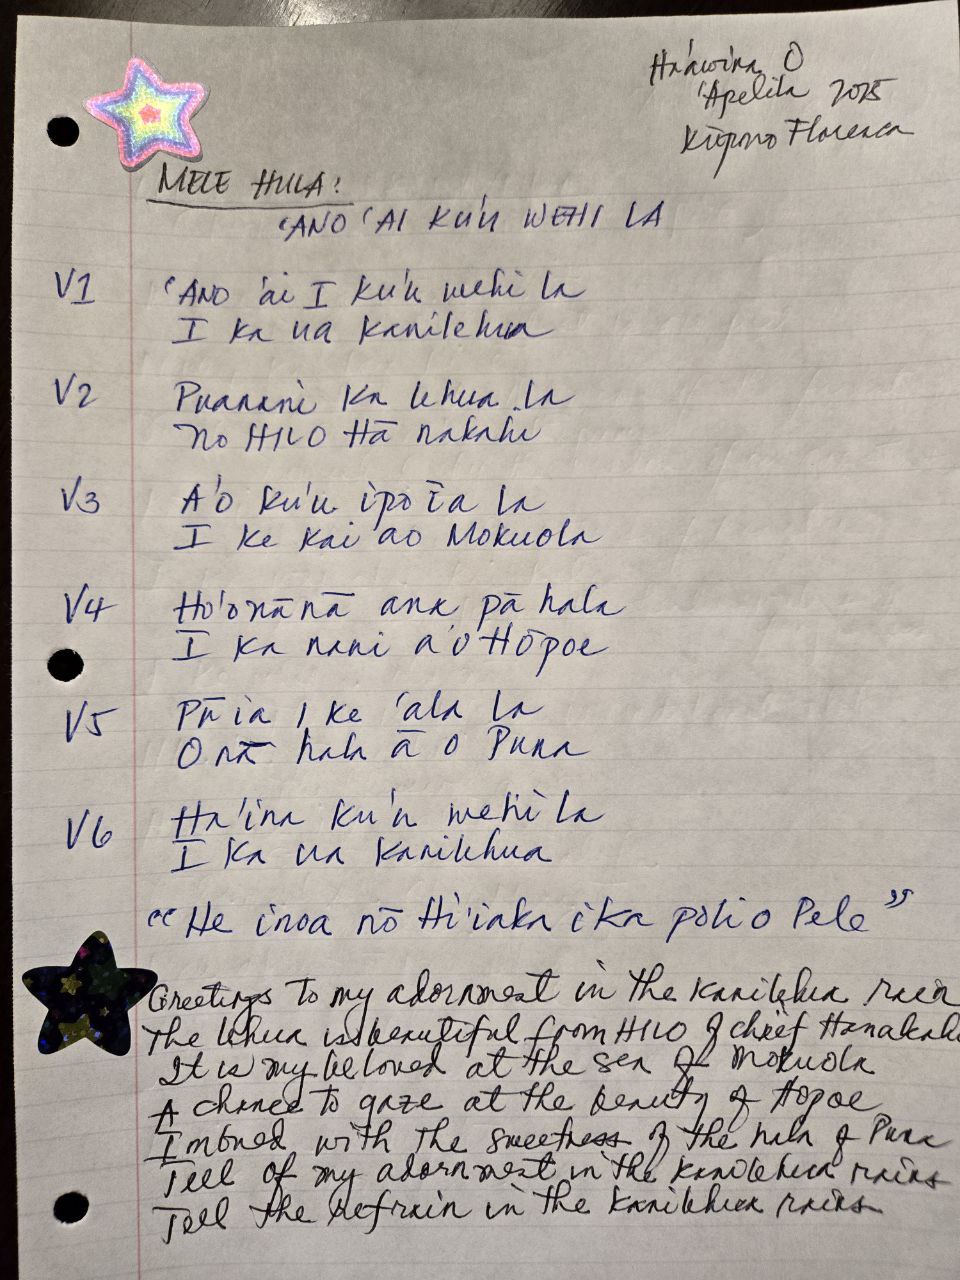 Ha'awina O
'Apelila 2025
Kūpono Florence
MELE HULA:
'ANO 'AI KU'U WEHI LA
V1 'ANO 'ai I ku'u wehi la
I ka ua Kanilehua
V2 Puanani ka lehua la
no HILO Hā nakahi
V3 A'o ku'u ipo īa la
I ke kai ao Mokuola
V4 Ho'onānā ana pā hala
I ka nani a'o Hōpoe
V5 Pū ia I ke 'ala la
O nā hala ā o Puna
V6 Ha'ina ku'u wehi la
I ka ua Kanilehua
"He inoa nō Hi'iaka i ka poli o Pele"
Greetings to my adornment in the Kanilehua rain
The lehua is beautiful from HILO of chief Hanakahi
It is my beloved at the sea of Mokuola
A chance to gaze at the beauty of Hopoe
Imbued with the sweetness of the hala of Puna
Tell of my adornment in the Kanilehua rains
Tell the refrain in the Kanilehua rains